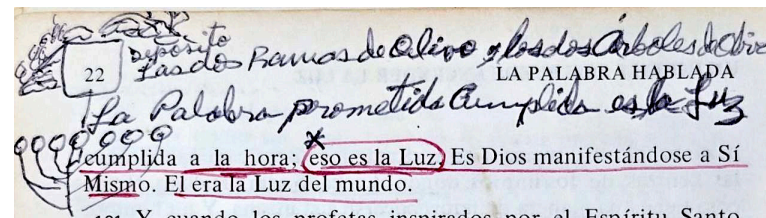 Depósito
Las dos Ramas de Olivo y los dos Árboles de Olivo
22 LA PALABRA HABLADA
La Palabra prometida Cumplida es la Luz
cumplida a la hora; eso es la Luz. Es Dios manifestándose a Sí
Mismo. El era la Luz del mundo.
Y cuando los profetas inspirados por el Espíritu Santo